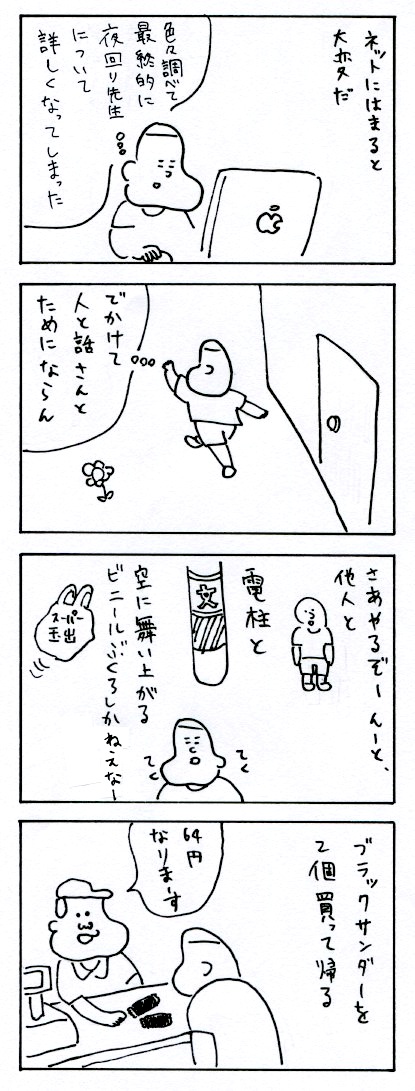 ネットにはまると
大変だ
色々調べて
最終的に
夜回り先生
について
詳しくなってしまった
でかけて
人と話さんと
ためにならん
さあやるぞーんーと、
他人と
電柱と
文
空に舞い上がる
ビニールぶくろしかねえなー
スーパー
玉出
てく
てく
ブラックサンダーを
2個買って帰る
64円
なりまーす